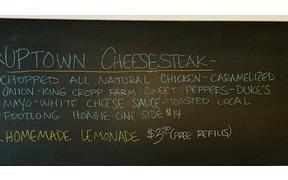 UPTOWN CHEESESTEAK-
CHOPPED ALL NATURAL CHICKEN-CARAMELIZED
ONION-KING CROPP FARM SWEET PEPPERS-DUKE'S
MAYO-WHITE CHEESE SAUCE-TOASTED LOCAL
FOOTLONG HOAGIE-ONE SIDE $14
HOMEMADE LEMONADE $3.50 (FREE REFILLS)